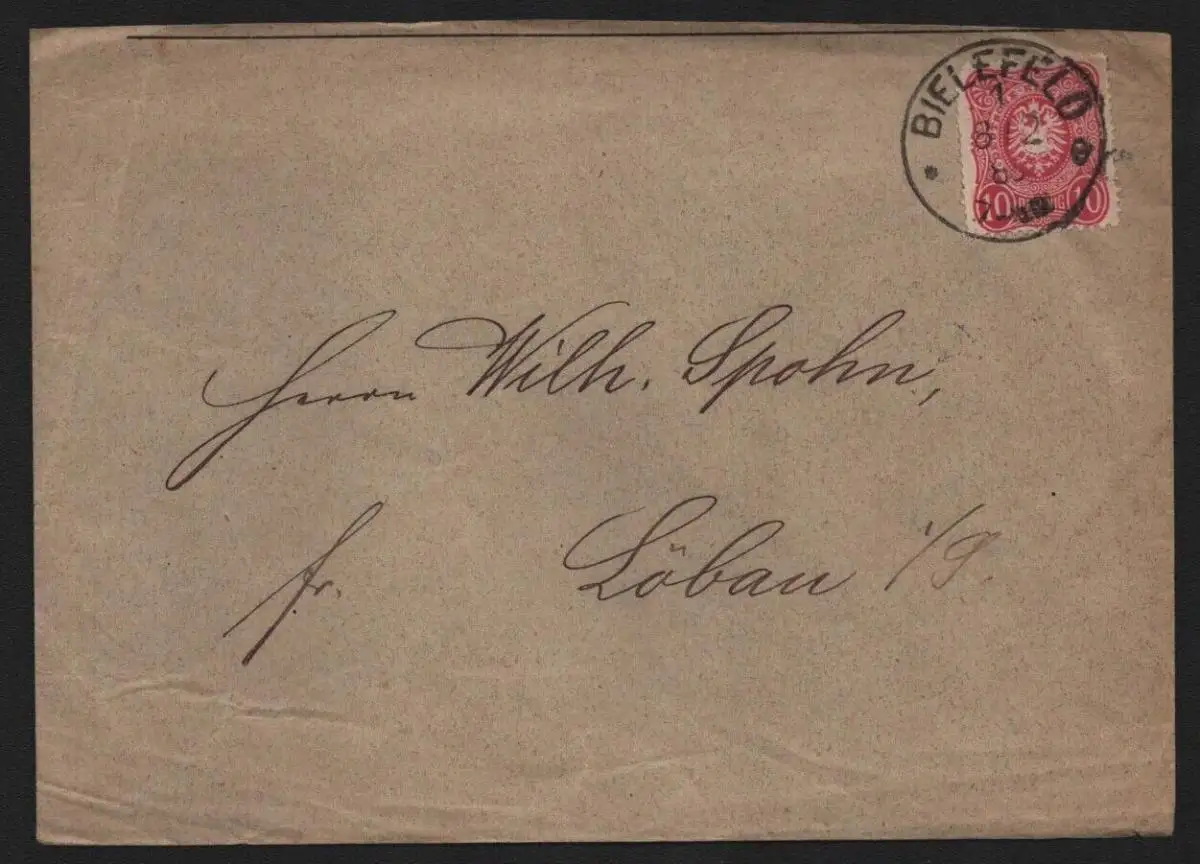 BIELEFELD
1
8 2
8
10 10
Herrn Wilh. Spohn,
fr. Löbau i/S.